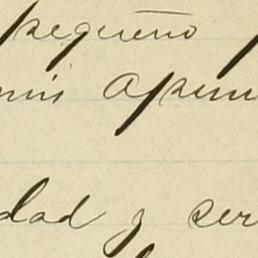 pequeño
mis Apun
dad y ser